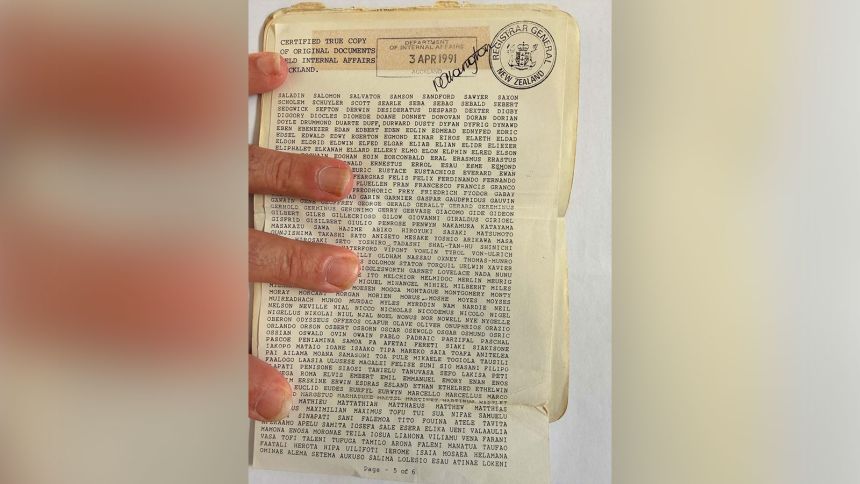 CERTIFIED TRUE COPY
OF ORIGINAL DOCUMENTS
HELD INTERNAL AFFAIRS
AUCKLAND.
DEPARTMENT
OF INTERNAL AFFAIRS
3 APR 1991
AUCKLAND
REGISTRAR GENERAL
NEW ZEALAND
SALADIN SALOMON SALVATOR SAMSON SANDFORD SAWYER SAXON
SCHOLEM SCHUYLER SCOTT SEARLE SEBA SEBAG SEBALD SEBERT
SEDGWICK SEFTON DERWIN DESIDERATUS DESPARD DEXTER DIGBY
DIGGORY DIOCLES DIOMEDE DOANE DONNET DONOVAN DORAN DORIAN
DOYLE DRUMMOND DUARTE DUFF DURWARD DUSTY DYFAN DYFRIG DYNAWD
EBEN EBENEZER EDAN EDBERT EDEN EDLIN EDMEAD EDNYFED EDRIC
EDSEL EDWALD EDWY EGERTON EGMOND EINAR EIROS ELAETH ELDAD
ELDON ELDRID ELDWIN ELFED ELGAR ELIAB ELIAN ELIDR ELIEZER
ELIPHALET ELKANAH ELLARD ELLERY ELMO ELON ELPHIN ELRED ELSON
EOGHAN EOIN EORCONBALD ERAL ERASMUS ERASTUS
ERNESTUS ERROL ESAU ESME ESMOND
EURIC EUSTACE EUSTACHIOS EVERARD EWAN
FEARGHAS FELIS FELIX FERDINANDO FERNANDO
FLUELLEN FRAN FRANCESCO FRANCIS GRANCO
FREODHORIC FREY FRIEDRICH FYODOR GABAY
GARIN GARNIER GASPAR GAUDFRIDUS GAUVIN
GAWAIN GENE GEOFFREY GEORGE GERALD GERALLT GERARD GEREMINUS
GERHOLD GERMINUS GERONIMO GERRY GERVASE GIACOMO GIDE GIDEON
GILBERT GILES GILLECRIOSD GILOW GIOVANNI GIRALDUS GIRIOEL
GISFRID GISILBERT GIULIO PENROSE PENWYN NAKAMURA KATAYAMA
MASAKAZU SAWA HAJIME ABIKO HIROYUKI SASAKI MATSUMOTO
GUNJISHIMA TAKASHI SATO ANISETO MESAKE YOSHIO ARIKAWA MASA
HIROSAKI SETO YOSHIRO TADASHI SHAL-TAN-HU SHINICHI
WATERFORD VIPONT VOHLIN TYROL VON-ULRICH
OLDHAM NASSAU OXNEY THOMAS-MUNRO
SOLOMON STATON TORQUIL URLWIN XAVIER
WIGGLESWORTH GARNET LOVELACE NADA NUNU
ITO MELCHIOR MELMIDOC MERLIN MEURIG
MIGUEL MIHANGEL MIHIEL MILBERHT MILES
MOESEN MOGGA MONTAGUE MONTGOMERY MONTY
MORAY MORCANT MORGAN MORIEN MORUS MOSHE MOYES MOYSES
MUIREADHACH MUNGO MURDAC MYLES MYRDDIN NAM NARDIE NEIL
NELSON NEVILLE NIAL NICCO NICHOLAS NICODEMUS NICOLO NIGEL
NIGELLUS NIKOLAI NIUL NJAL NOEL NONUS NOR NOWELL NYE NYGELLE
OBERON ODYSSEUS OFFEROS OLAFUR OLAVE OLIVER ONUPHRIUS ORAZIO
ORLANDO ORSON OSBERT OSBORN OSCAR OSEWOLD OSGAR OSMUND OSRIC
OSSIAN OSWALD OVIN OWAIN PABLO PADRAIC PARZIFAL PASCHAL
PASCOE PENIAMINA SAMOA PA AFETAI FERETI SIAKI SIAKISONE
IAKOPO MATAIO IOANE ISAAKO TIPA MAREKO SAIA TOAFA ANITELEA
PAI AILAMA MOANA SAMASONI TOA PULE MIKAELE TOGIOLA TAUSILI
FAALOGO LAASIA ULUSESE MAGALSI FELISE SUNI SIO MASANI FILIPO
PENISONE SIAOSI TANIELU TANUVASA SEFO LAKISA PETI
ROMA ELVIS EMBERT EMIL EMMANUEL EMORY ENAN ENOS
ERSKINE ERWIN ESDRAS ESLAND ETHAN ETHELRED ETHELWIN
EUCLID EUDES EURFYL EURWYN MARCELLO MARCELLUS MARCO
MARGETUD MARMADUKE MARTEL MARTINET MARTINUS
MATHIEU MATTATHIAH MATTHAEUS MATTHEW MATTHIAS
MAXIMILIAN MAXIMUS TOFU TUI SUA NIFAE SAMUELU
SINAPATI SANI FALEMOA TITO FOUINA ATELE TAVITA
APERAAMO APELU SAMITA IOSEFA SALE ESERA ELIKA UENI VALAAULIA
MAMONA ENOSA MORONAE TEILA IOSUA LIAHONA VILIAMU VENA FARANI
VASA TOFI TALENI TUFUGA TAMILO ARONA FALENI MANATUA TAUFAO
FAATALI HEROTA RIPA UILIFOTI IEROME ISAIA MOSAEA HELAMANA
OMINAE ALEMA SETEMA AUKUSO SALIMA LOLESIO ESAU ATINAE LOKENI
Page - 5 of 6